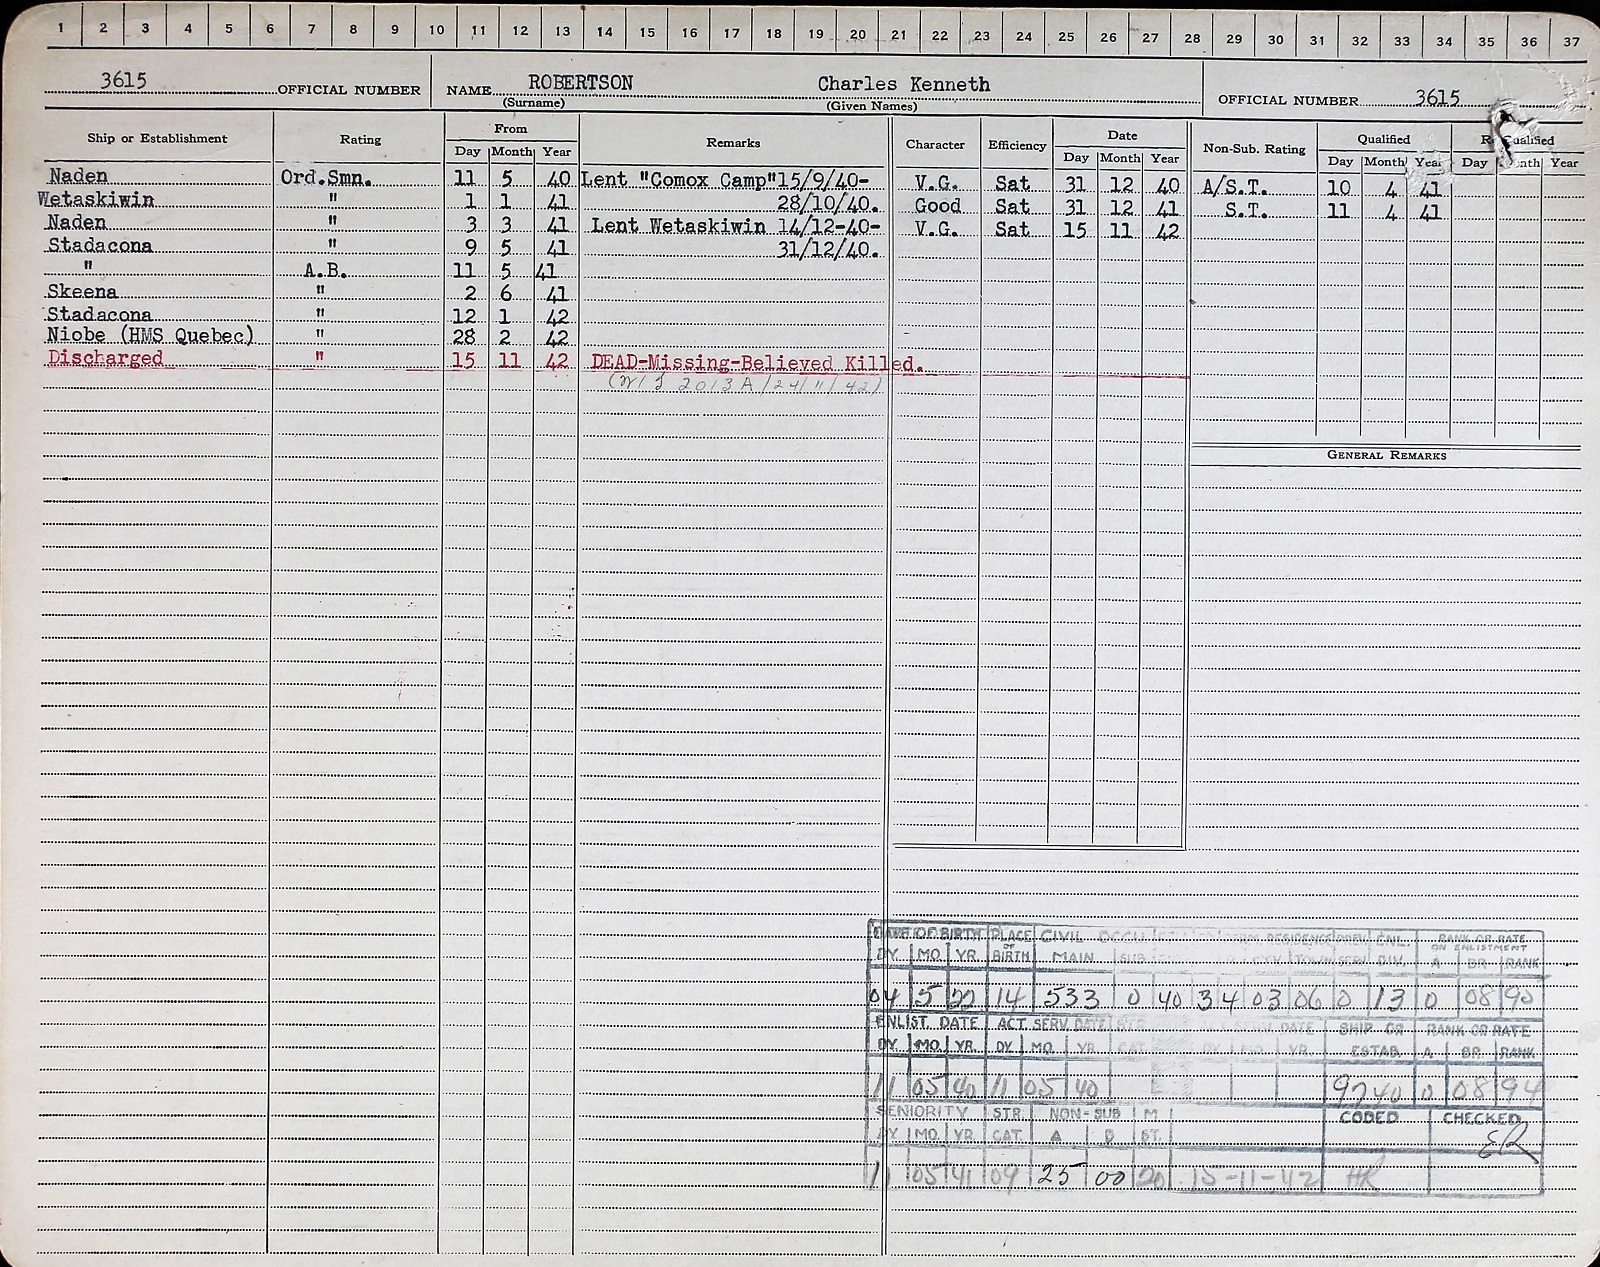 1 2 3 4 5 6 7 8 9 10 11 12 13 14 15 16 17 18 19 20 21 22 23 24 25 26 27 28 29 30 31 32 33 34 35 36 37
3615 OFFICIAL NUMBER NAME ROBERTSON Charles Kenneth OFFICIAL NUMBER 3615
(Surname) (Given Names)
Ship or Establishment Rating From Remarks Character Efficiency Date Non-Sub. Rating Qualified
Day Month Year Day Month Year Day Month Year Day Year
Naden Ord.Smn. 11 5 40 Lent "Comox Camp"15/9/40- V.G. Sat 31 12 40 A/S.T. 10 4 41
Wetaskiwin " 1 1 41 28/10/40. Good Sat 31 12 41 S.T. 11 4 41
Naden " 3 3 41 Lent Wetaskiwin 14/12-40- V.G. Sat 15 11 42
Stadacona " 9 5 41 31/12/40.
" A.B. 11 5 41
Skeena " 2 6 41
Stadacona " 12 1 42
Niobe (HMS Quebec) " 28 2 42
Discharged " 15 11 42 DEAD-Missing-Believed Killed.
2013A/24/11/42)
GENERAL REMARKS
DATE OF BIRTH PLACE OF BIRTH CIVIL RESIDENCE ENL. RANK OR RATE ON ENLISTMENT
DY. MO. YR. MAIN SUB TOWN SERV. DIV. A BR. RANK
04 5 20 14 533 0 40 34 03 06 0 13 0 08 90
ENLIST. DATE ACT. SERV. DATE DATE SHIP OR ESTAB. RANK OR RATE
DY. MO. YR. DY. MO. YR. CAT. DY. MO. YR. A BR. RANK
11 05 40 11 05 40 9740 0 08 94
SENIORITY STR. CAT. NON-SUB M CODED CHECKED
DY. MO. YR. A B ST. ER
11 05 41 04 25 00 20 15-11-42 HR